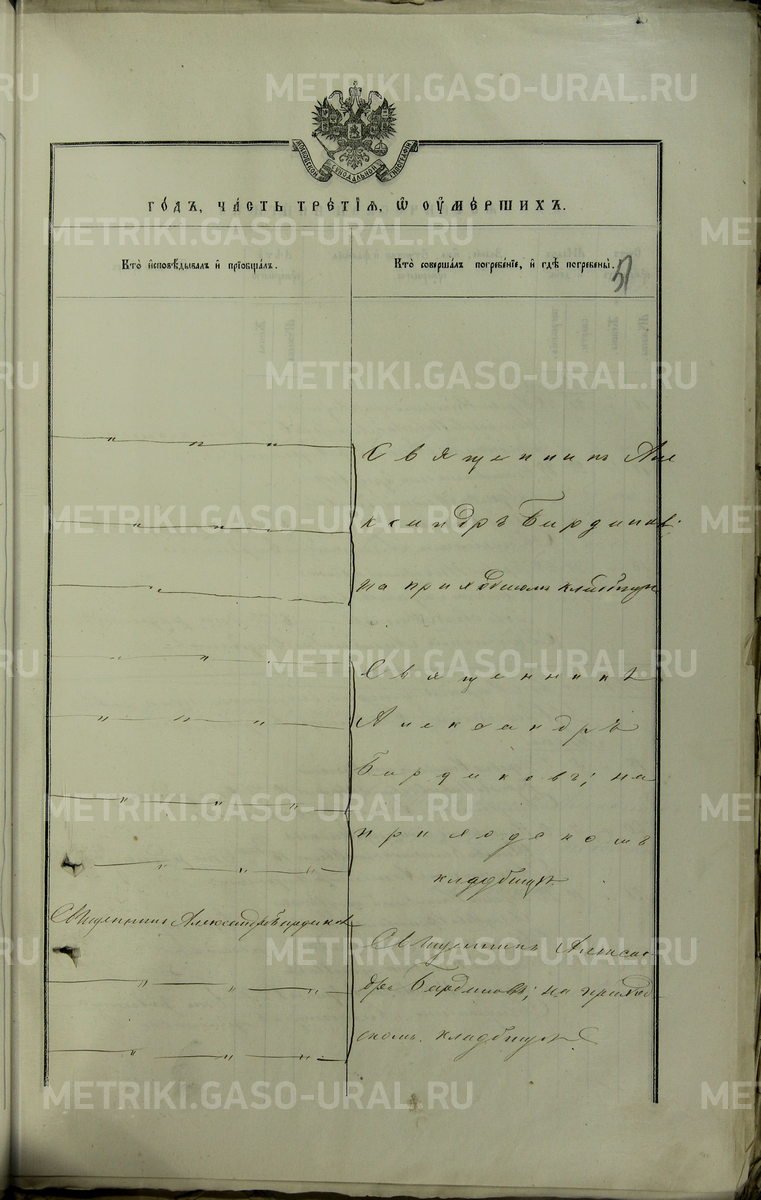 METRIKI.GASO-URAL.RU
МОСКОВСКОЙ СѴНОДАЛЬНОЙ ТИПОГРАФІИ
ГО́ДЪ, ЧА́СТЬ ТРЕ́ТІѦ, Ѡ ОУ҆МЕ́РШИХЪ.
Кто̀ и҆сповѣ́дывалъ и҆ прїобща́лъ.
Кто̀ соверша́лъ погребе́нїе, и҆ гдѣ̀ погребены̀.
Священникъ Але
ксандръ Бирдиковъ
на приходскомъ кладбищѣ
Священникъ
Александръ
Бирдиковъ; на
приходскомъ
кладбищѣ.
Священникъ Александръ Бирдиковъ
Священникъ Алексан
дръ Бирдиковъ; на приход
скомъ кладбищѣ